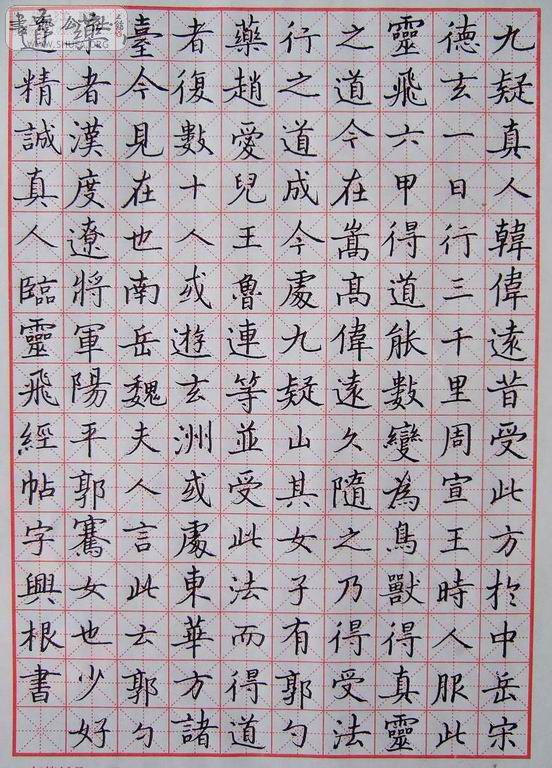 九疑真人韓偉遠昔受此方於中岳宋
德玄一日行三千里周宣王時人服此
靈飛六甲得道能數變為鳥獸得真靈
之道今在嵩高偉遠久隨之乃得受法
行之道成今處九疑山其女子有郭勺
藥趙愛兒王魯連等並受此法而得道
者復數十人或遊玄洲或處東華方諸
臺今見在也南岳魏夫人言此云郭勺
藥者漢度遼將軍陽平郭騫女也少好
道精誠真人臨靈飛經帖字興根書
WWW.SHUFA.ORG